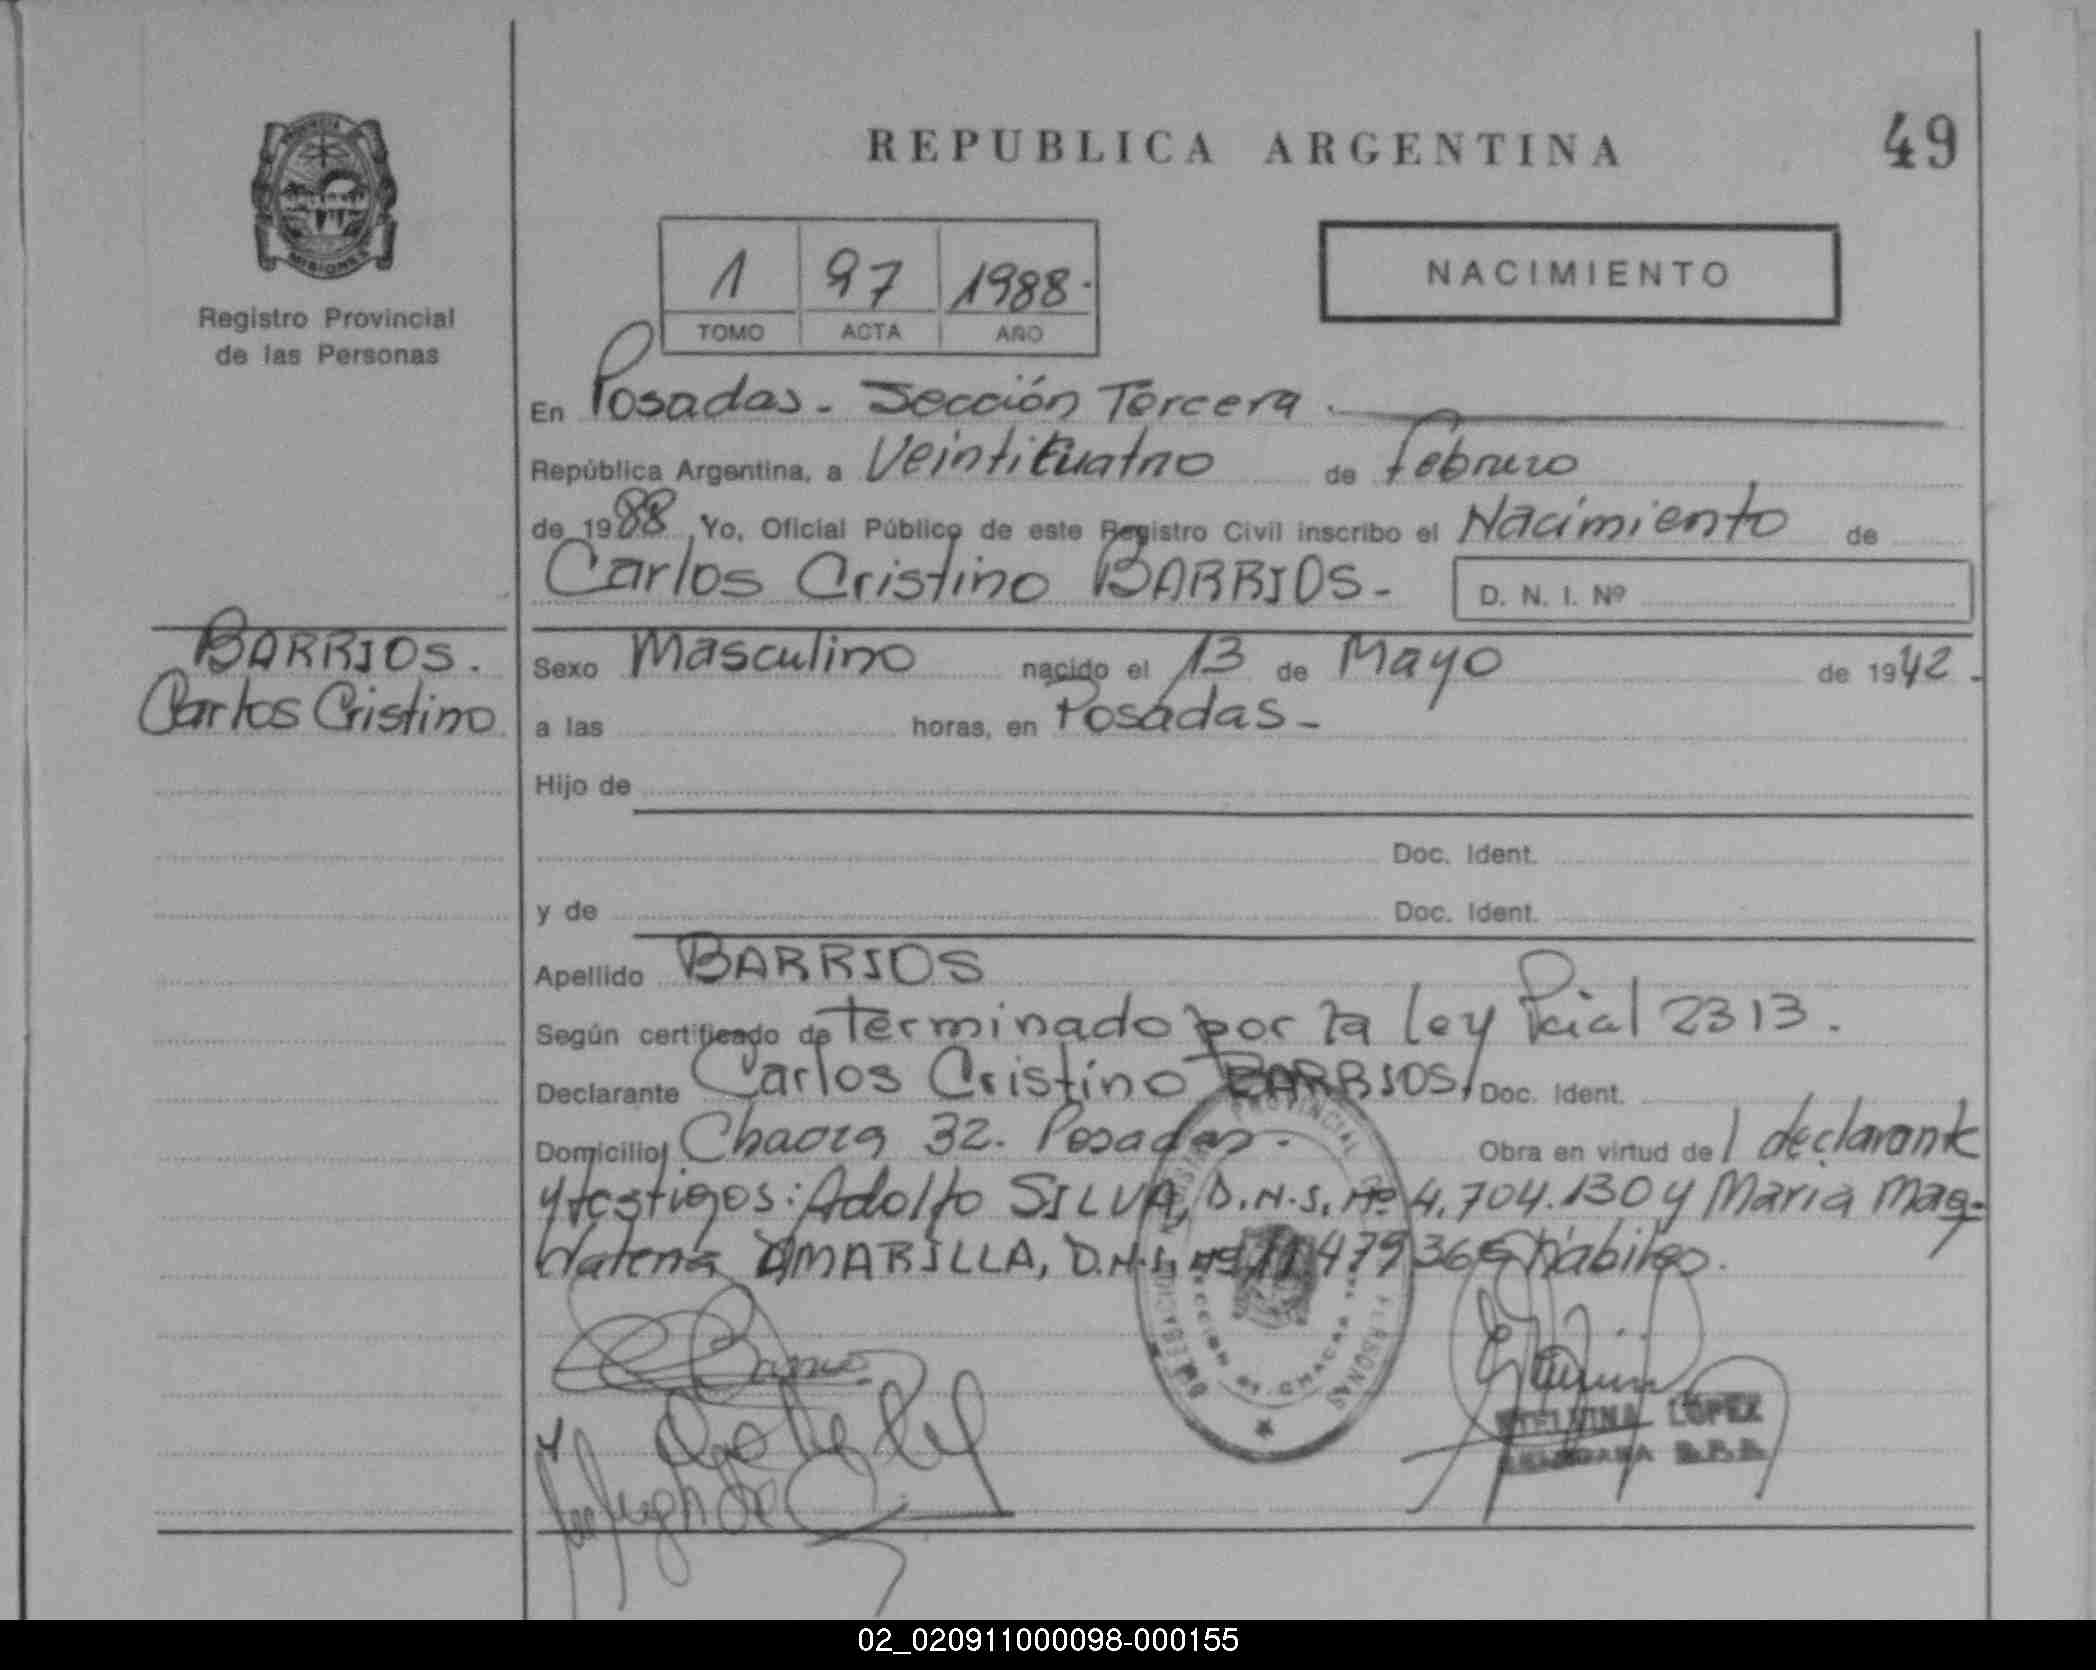 REPUBLICA ARGENTINA
49
MISIONES
Registro Provincial
de las Personas
1 97 1988.
TOMO ACTA AÑO
NACIMIENTO
En Posadas. Sección Tercera.
República Argentina, a Veinticuatro de Febrero
de 1988 Yo, Oficial Público de este Registro Civil inscribo el Nacimiento de
Carlos Cristino BARRIOS.-
D. N. I. Nº
BARRIOS.
Carlos Cristino
Sexo Masculino nacido el 13 de Mayo de 1942.
a las horas, en Posadas-
Hijo de
Doc. Ident.
y de Doc. Ident.
Apellido BARRIOS
Según certificado determinado por la ley Pcial 2313.
Declarante Carlos Cristino BARRIOS, Doc. Ident.
Domicilio Chacra 32. Posadas. Obra en virtud del declarante
y testigos: Adolfo SILVA, D.N.I. Nº 4.704.130 y Maria Mag-
dalena AMARILLA, D.N.I. Nº hábiles.
LOPEZ
02_020911000098-000155